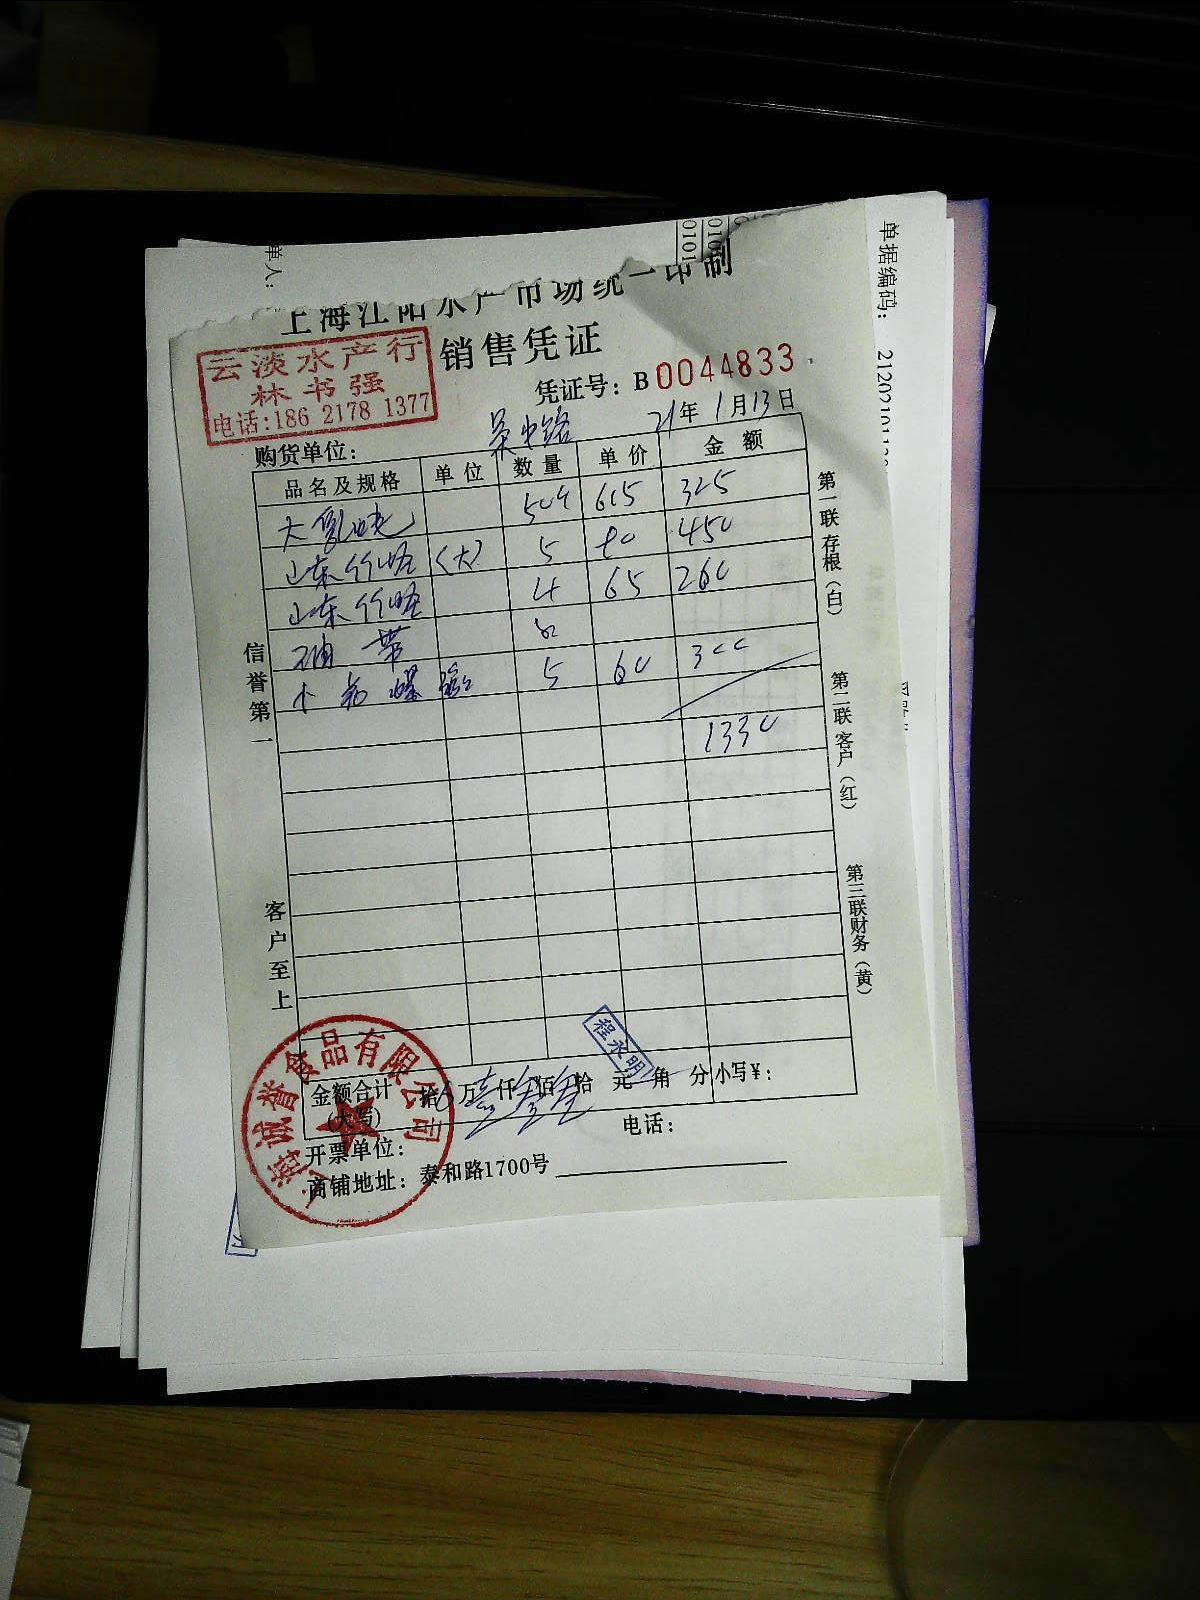 单人:
0101
单据编码:
上海江阳水产市场统一印制
销售凭证
云淡水产行
林书强
电话:186 2178 1377
凭证号: B 0044833
21年 1月13日
购货单位:
品名及规格 单位 数量 单价 金额
615 325
山东竹蛏 (大) 5 450
山东竹蛏 4 65 260
5 60 300
1330
信誉第一
客户至上
第一联存根(白)
第二联客户(红)
第三联财务(黄)
程永明
金额合计
(大写)
拾 万 仟 佰 拾 元 角 分 小写¥:
开票单位:
电话:
商铺地址: 泰和路1700号
上海诚誉食品有限公司